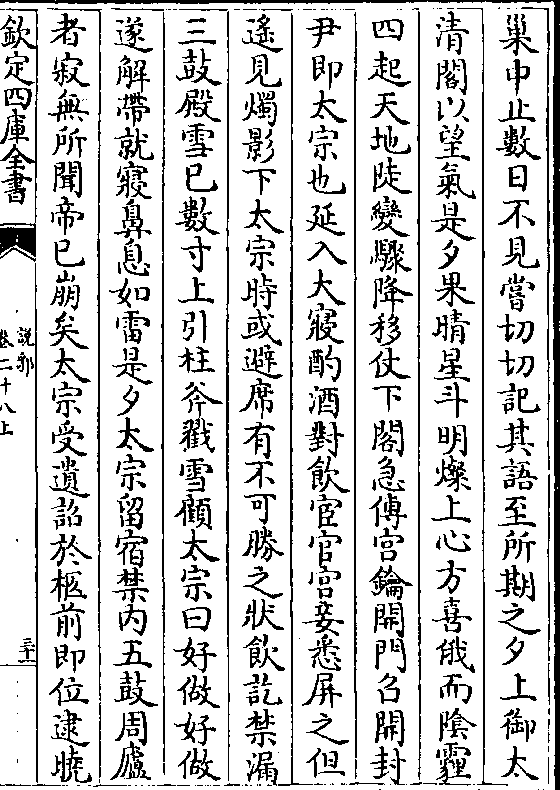 巢中止數日不見嘗切切記其語至所期之夕上御太
清閣以望氣是夕果晴星斗明燦上心方喜俄而陰霾
四起天地陡變驟降移仗下閣急傳宫鑰開門召開封
尹即太宗也延入大寢酌酒對飲宦官宫妾悉屏之但
遥見燭影下太宗時或避席有不可勝之狀飲訖禁漏
三鼓殿雪已數寸上引柱斧戳雪顧太宗曰好做好做
遂解帶就寢鼻息如雷是夕太宗留宿禁内五鼓周廬
者寂無所聞帝已崩矣太宗受遺詔於柩前即位逮曉
欽定四庫全書
説郛
卷二十八上
三十一